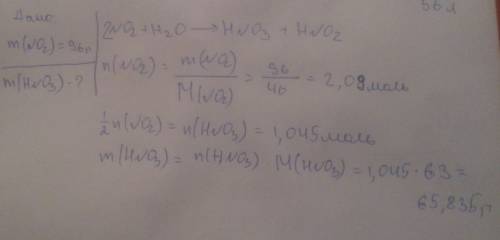 56 л
Дано
m(NO2)=96 г
m(HNO3)-?
2NO2+H2O ⟶ HNO3 + HNO2
n(NO2) = m(NO2)/M(NO2) = 96/46 = 2,09 моль
1/2 n(NO2) = n(HNO3) = 1,045 моль
m(HNO3) = n(HNO3) · M(HNO3) = 1,045 · 63 =
65,835 г